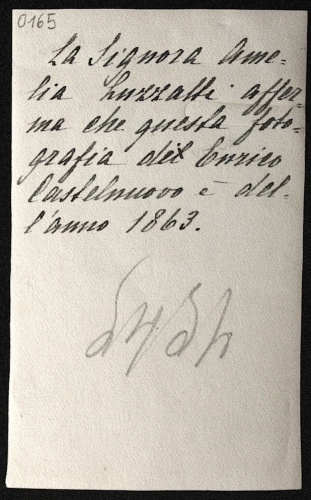 0165
La Signora Ame-
lia Luzzatti affer-
ma che questa foto-
grafia del Enrico
Castelnuovo è del-
l'anno 1863.